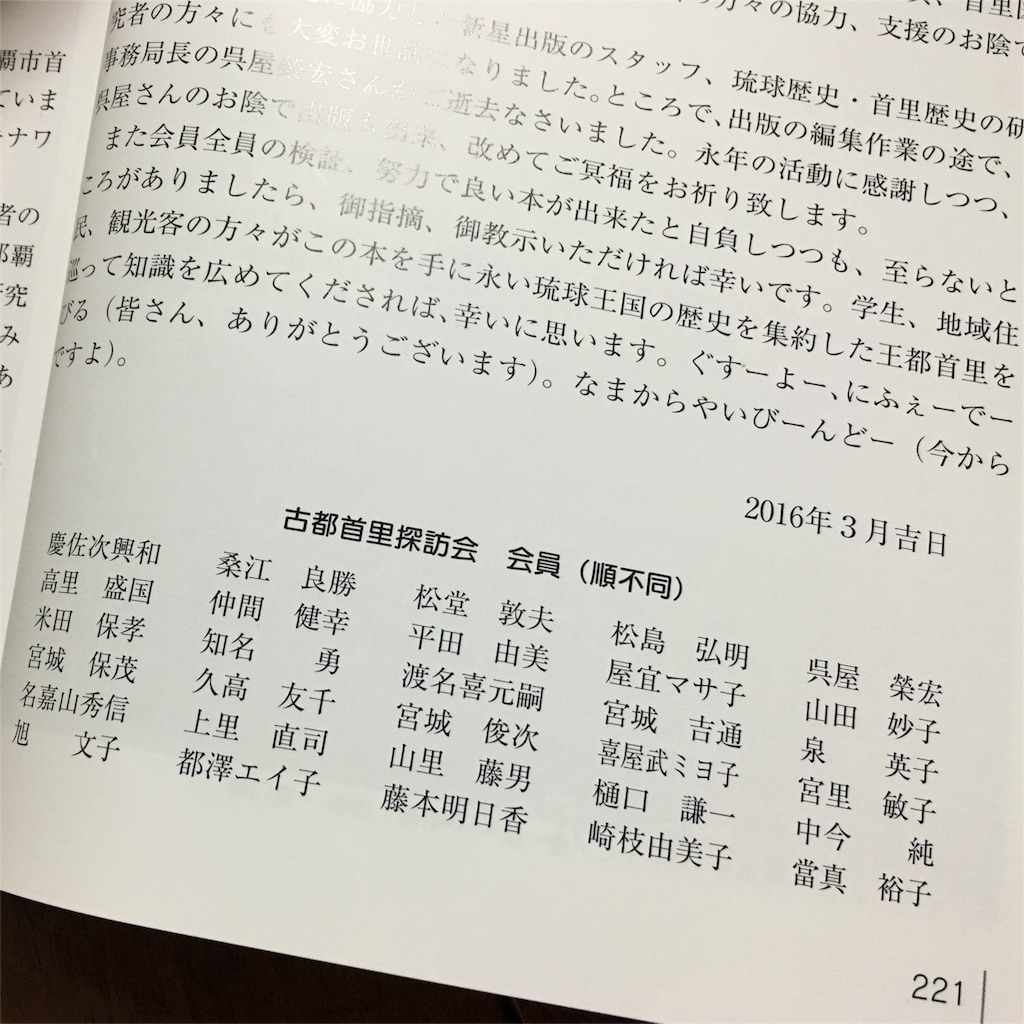 覇市首
ていま
ナワ
者の
那覇
研究
み
あ
に協力し 新星出版のスタッフ、琉球歴史・首里歴史の研
方々の協力、支援のお陰で
究者の方々にも大変お世話になりました。ところで、出版の編集作業の途で、
事務局長の呉屋榮宏さんがご逝去なさいました。永年の活動に感謝しつつ、
呉屋さんのお陰で出版も出来、改めてご冥福をお祈り致します。
また会員全員の検証、努力で良い本が出来たと自負しつつも、至らないと
ころがありましたら、御指摘、御教示いただければ幸いです。学生、地域住
民、観光客の方々がこの本を手に永い琉球王国の歴史を集約した王都首里を
巡って知識を広めてくだされば、幸いに思います。ぐすーよー、にふぇーでー
びる（皆さん、ありがとうございます）。なまからやいびーんどー（今から
ですよ）。
2016年3月吉日
古都首里探訪会 会員（順不同）
慶佐次興和 桑江 良勝 松堂 敦夫 松島 弘明 呉屋 榮宏
高里 盛国 仲間 健幸 平田 由美 屋宜マサ子 山田 妙子
米田 保孝 知名 勇 渡名喜元嗣 宮城 吉通 泉 英子
宮城 保茂 久高 友千 宮城 俊次 喜屋武ミヨ子 宮里 敏子
名嘉山秀信 上里 直司 山里 藤男 樋口 謙一 中今 純
旭 文子 都澤エイ子 藤本明日香 崎枝由美子 當真 裕子
221